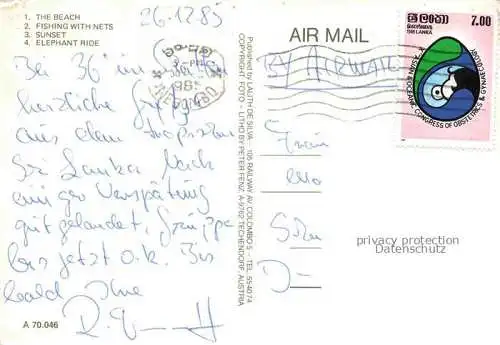 1. THE BEACH
2. FISHING WITH NETS
3. SUNSET
4. ELEPHANT RIDE
26.12.85
Bei 36° im
herzliche Grüße
aus dem tropischen
Sri Lanka. Nach
einiger Verspätung
gut gelandet, Gruppe
bis jetzt o.k. Bis
bald Ihre
A 70.046
Published by LALITH DE SILVA · 105 RAILWAY AV. COLOMBO 5 TEL. 554074
COPYRIGHT FOTO + LITHO BY PETER FENZ, A-9762 TECHENDORF, AUSTRIA
AIR MAIL
BY AIRMAIL
7.00
1985 LANKA
ASIAN & OCEANIC CONGRESS OF OBSTETRICS & GYNAECOLOGY
privacy protection
Datenschutz